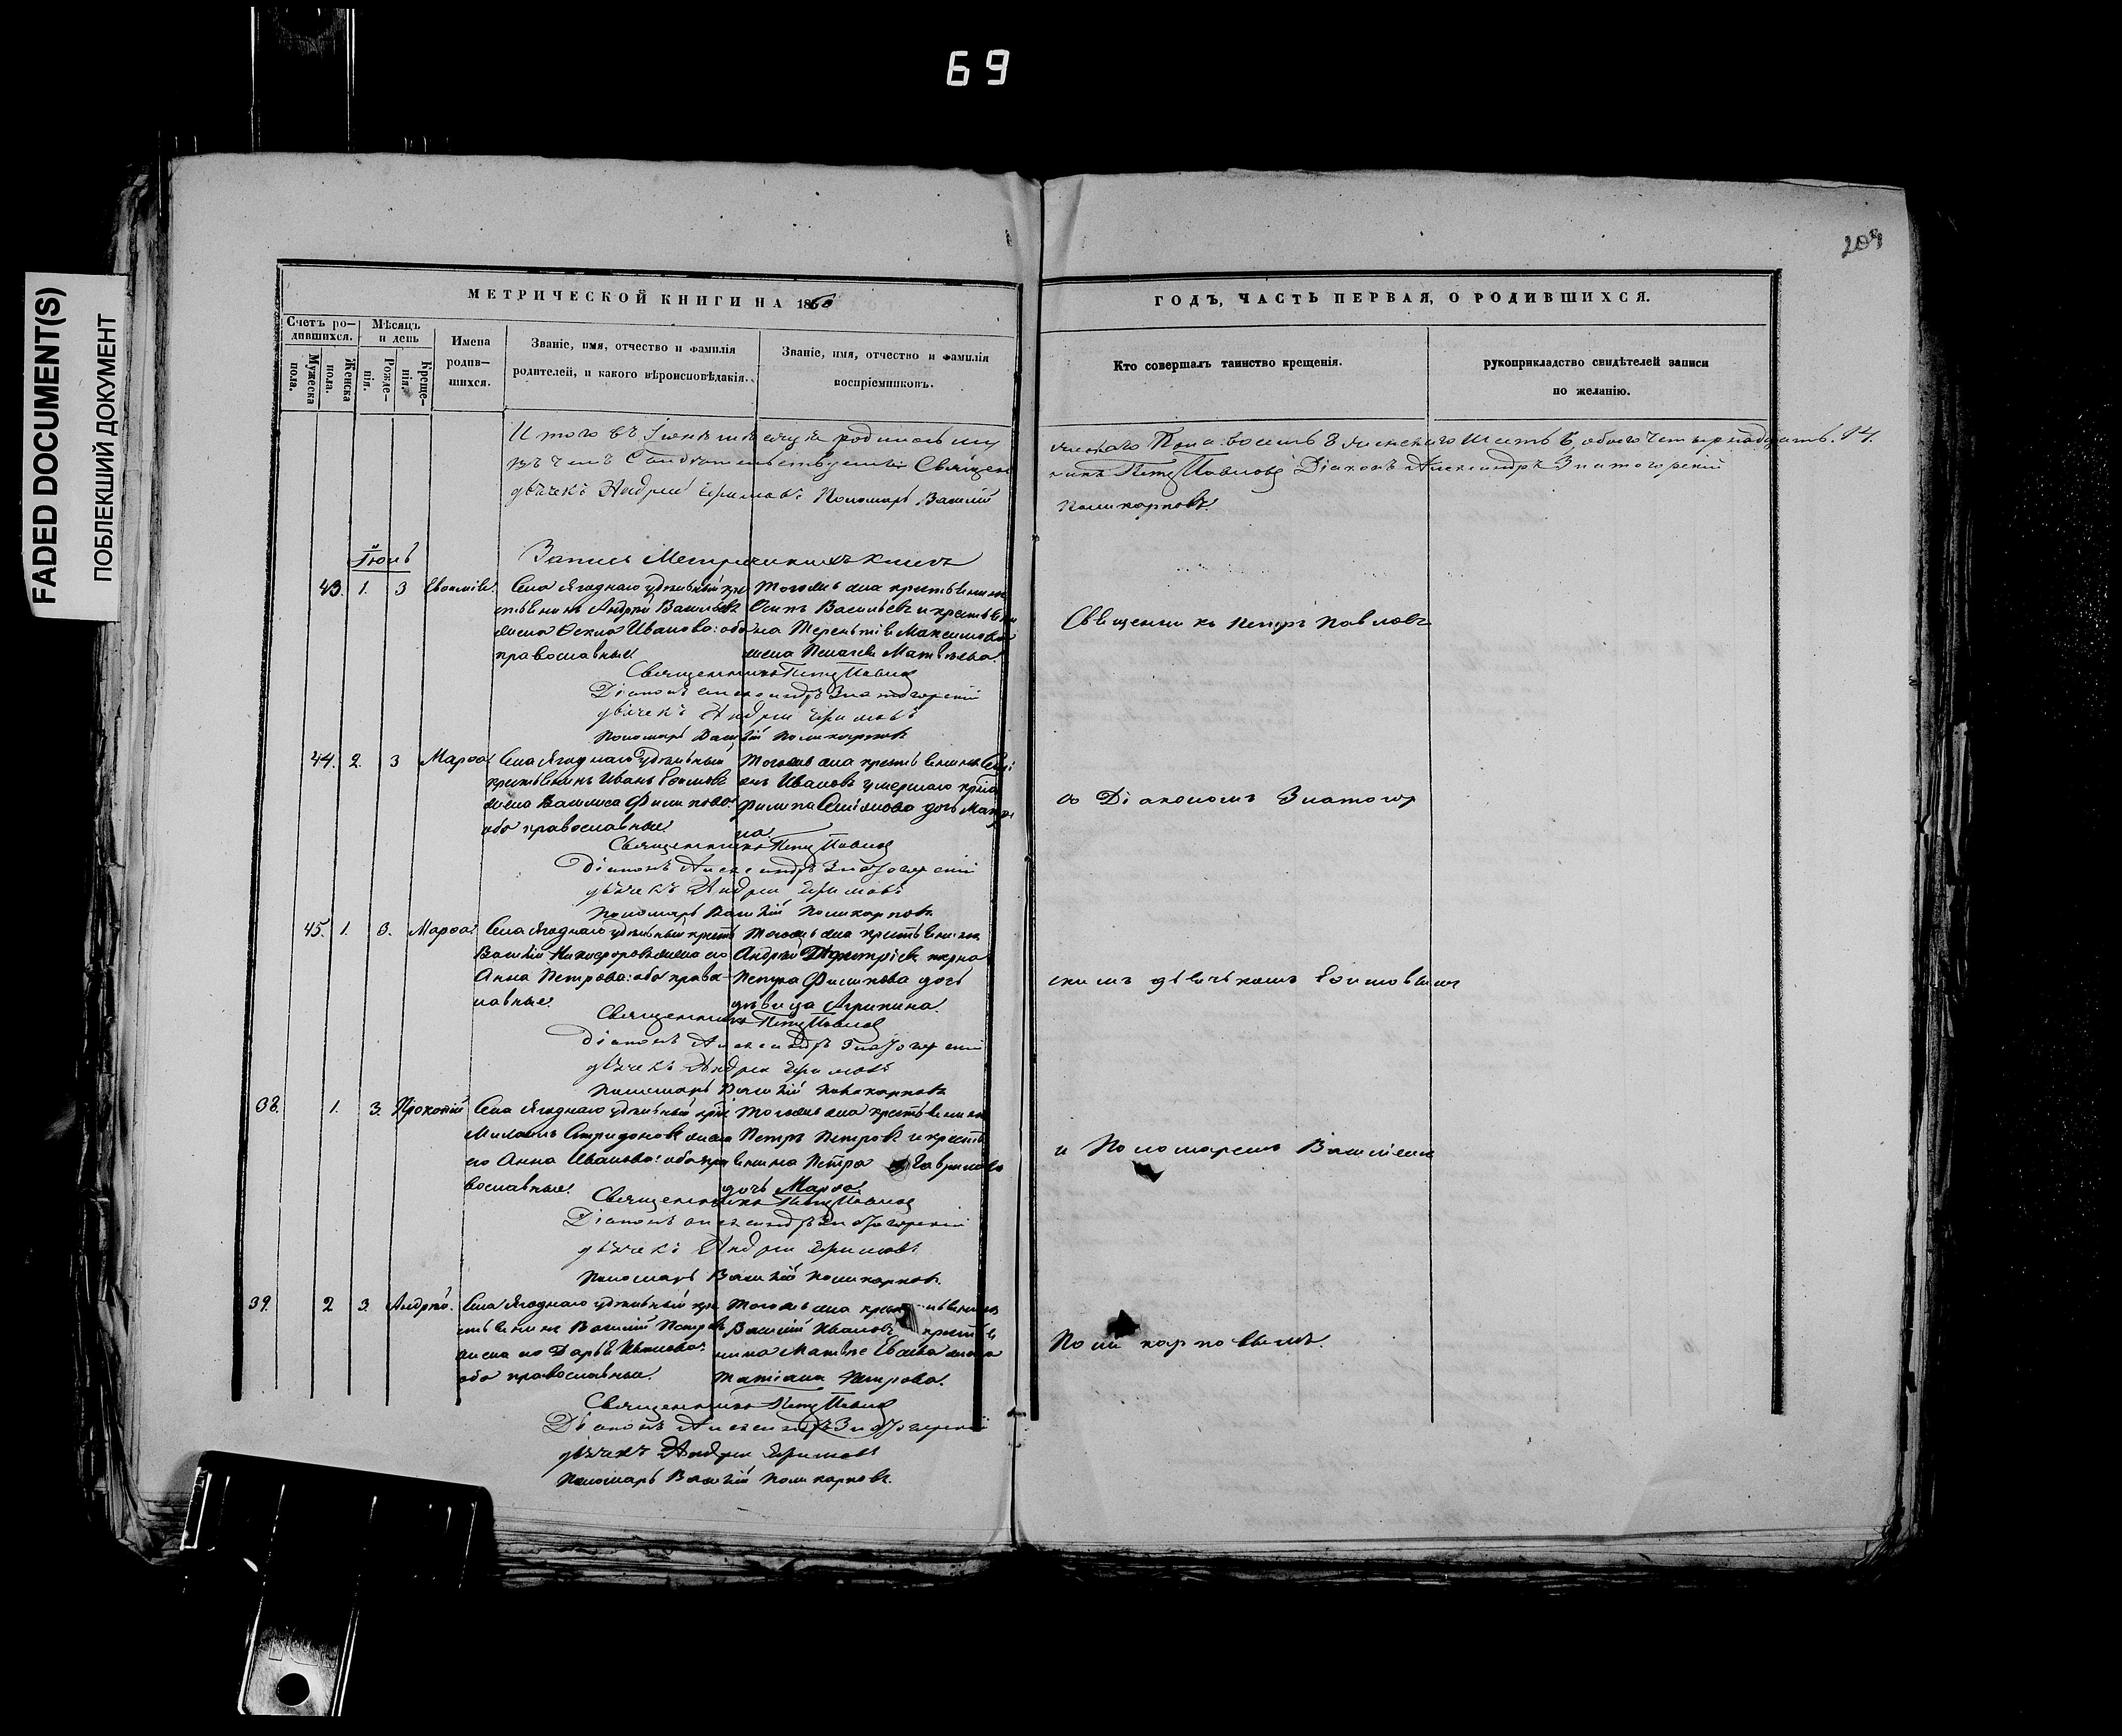 69
FADED DOCUMENT(S)
ПОБЛЕКШИЙ ДОКУМЕНТ
209
МЕТРИЧЕСКОЙ КНИГИ НА 1860
ГОДЪ, ЧАСТЬ ПЕРВАЯ, О РОДИВШИХСЯ.
Счетъ ро—
дившихся.
Мужеска
пола.
Женска
пола.
Мѣсяцъ
и день
Рожде—
нія.
Креще—
нія.
Имена
родив—
шихся.
Званіе, имя, отчество и фамилія
родителей, и какого вѣроисповѣданія.
Званіе, имя, отчество и фамилія
воспріемниковъ.
Кто совершалъ таинство крещенія.
рукоприкладство свидѣтелей записи
по желанію.
Итого въ родилось му
жескаго Пола: восемь 8 женскаго шесть 6, обоего четырнадцать. 14.
въ чемъ Свидѣтельствуемъ Священ
никъ Петръ Павловъ Діаконъ Александръ Златогорскій
дьячекъ Андрей Ефимовъ Пономарь Василій
Поликарповъ.
Запись Метрическихъ книгъ
43. 1. 3
Села Ягоднаго удѣльный кре
стьянинъ Андрей Васильевъ
жена Ѳекла Иванова: оба
православные
Тогожъ села крестьянинъ
Осипъ Васильевъ и крестьяни
на Терентія Максимова
жена Пелагея Матвѣева.
Священникъ Петръ Павловъ
Священникъ Петръ Павловъ
Діаконъ Александръ Златогорскій
дьячекъ Андрей Ефимовъ
Пономарь Василій Поликарповъ
44. 2. 3 Марѳа
Села Ягоднаго Удѣльный
крестьянинъ Иванъ Ефимовъ
жена Василиса Филипова:
оба православные
Тогожъ села крестьянинъ Семі
онъ Ивановъ умершаго
Филипа Семіонова дочь
на.
съ Діакономъ Златогор
Священникъ Петръ Павловъ
Діаконъ Александръ Златогорскій
дьячекъ Андрей Ефимовъ
Пономарь Василій Поликарповъ
45. 1. 3. Марѳа
Села Ягоднаго удѣльный крестья
Василій Никифоровъ жена его
Анна Петрова: оба право
славные.
Тогожъ села крестьянинъ
Андрей Дмитріевъ
Петра Филипова дочь
дѣвица Агрипина.
скимъ дьячькомъ Ефимовымъ
Священникъ Петръ Павловъ
Діаконъ Александръ Златогорскій
дьячекъ Андрей Ефимовъ
Пономарь Василій Поликарповъ
38. 1. 3. Прокопій
Села Ягоднаго удѣльный
Спиридоновъ жена
его Анна Иванова: оба пра
вославные.
Тогожъ села крестьянинъ
Петръ Петровъ и кресть
янина Петра Гаврилова
дочь Марѳа.
и Пономаремъ Василіемъ
Священникъ Петръ Павловъ
Діаконъ Александръ Златогорскій
дьячекъ Андрей Ефимовъ
Пономарь Василій Поликарповъ.
39. 2 3. Андрей.
Села Ягоднаго удѣльный кре
стьянинъ Василій Петровъ
жена его Дарья Иванова:
оба православные.
Тогожъ села крестьянинъ
Василій Ивановъ крестья
нина жена
Татіана Петрова.
Поликарповымъ.
Священникъ Петръ Павловъ
Діаконъ Александръ Златогорскій
дьячекъ Андрей Ефимовъ
Пономарь Василій Поликарповъ.